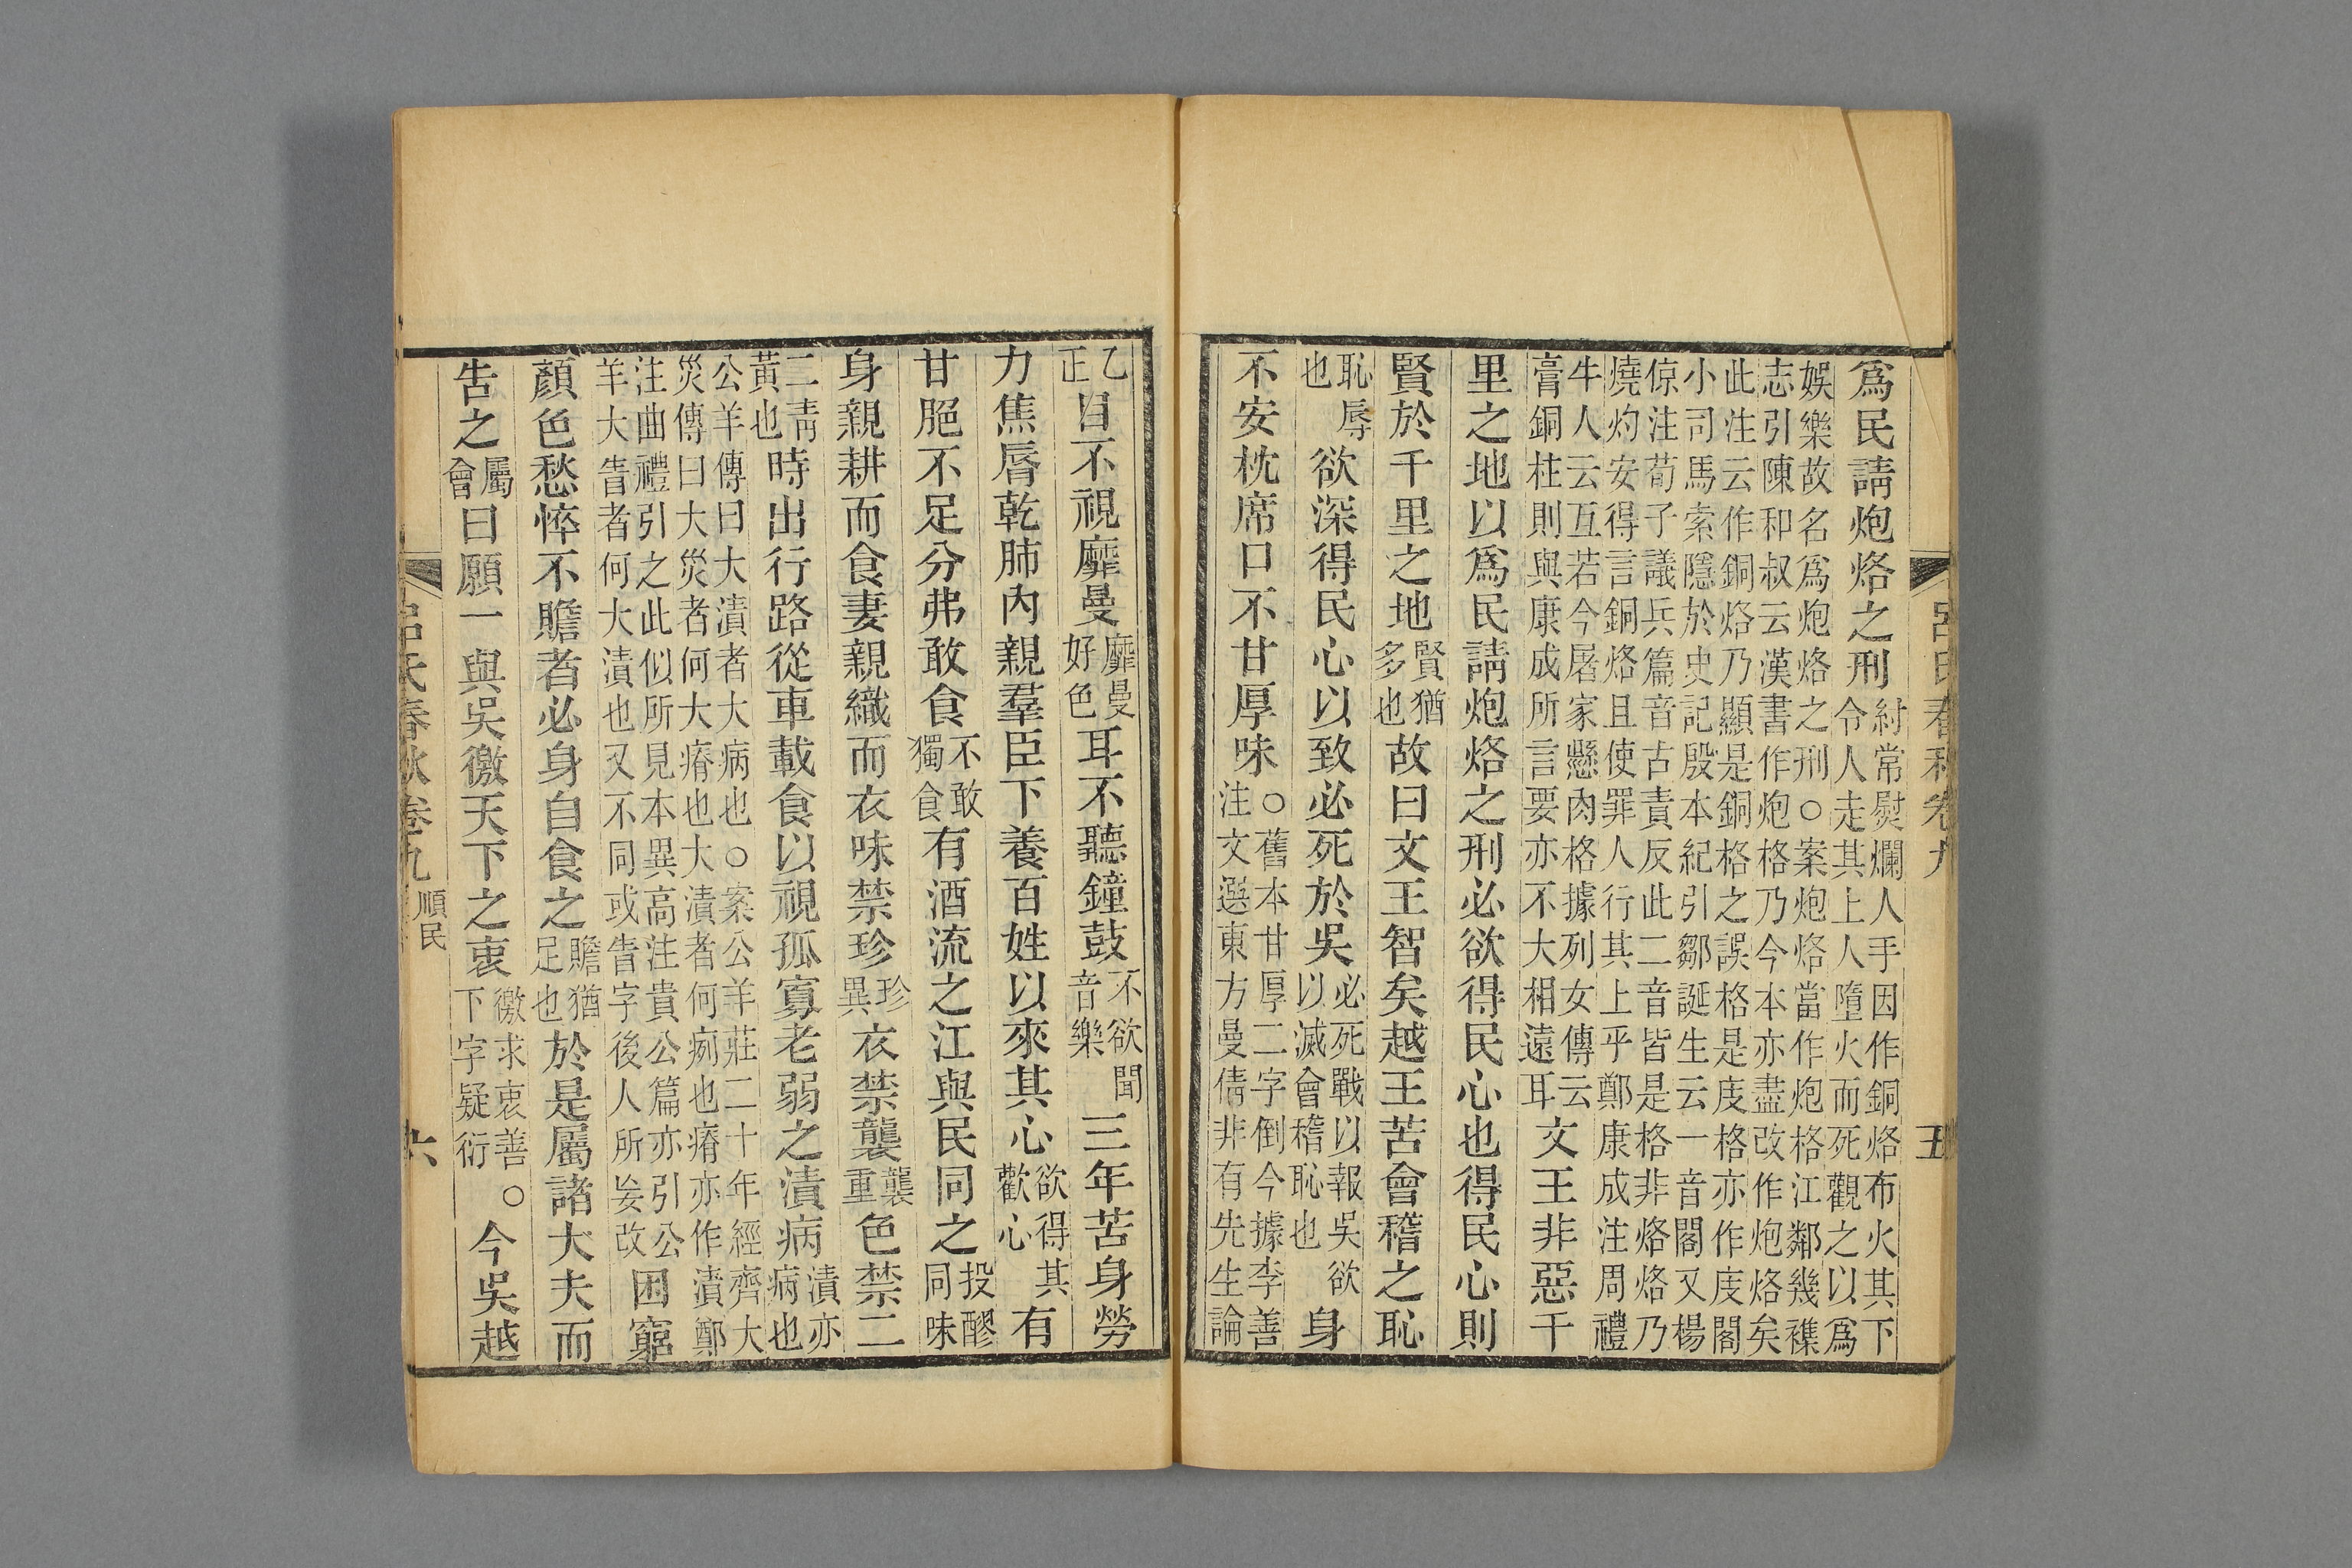 呂氏春秋卷九 五
爲民請炮烙之刑紂常熨爛人手因作銅烙布火其下令人走其上人墮火而死觀之以爲
娛樂故名爲炮烙之刑○案炮烙當作炮格江鄰幾襍志引陳和叔云漢書作炮格乃今本亦盡改作炮烙矣
此注云作銅烙乃顯是銅格之誤格是庋格亦作庋閣小司馬索隱於史記殷本紀引鄒誕生云一音閣又楊
倞注荀子議兵篇音古責反此二音皆是格非烙烙乃燒灼安得言銅烙且使罪人行其上乎鄭康成注周禮
牛人云互若今屠家懸肉格據列女傳云膏銅柱則與康成所言要亦不大相遠耳文王非惡千
里之地以爲民請炮烙之刑必欲得民心也得民心則
賢於千里之地賢猶多也故曰文王智矣越王苦會稽之恥
恥辱也欲深得民心以致必死於吳必死戰以報吳欲以滅會稽恥也身
不安枕席口不甘厚味○舊本甘厚二字倒今據李善注文選東方曼倩非有先生論
乙正目不視靡曼靡曼好色耳不聽鐘鼓不欲聞音樂三年苦身勞
力焦脣乾肺內親羣臣下養百姓以來其心欲得其歡心有
甘脃不足分弗敢食不敢獨食有酒流之江與民同之投醪同味
身親耕而食妻親織而衣味禁珍珍異衣禁襲襲重色禁二
二靑黃也時出行路從車載食以視孤寡老弱之漬病漬亦病也
公羊傳曰大漬者大病也○案公羊莊二十年經齊大災傳曰大災者何大瘠也大漬者何㾐也瘠亦作漬鄭
注曲禮引之此似所見本異高注貴公篇亦引公羊大眚者何大漬也又不同或眚字後人所妄改困窮
顏色愁悴不贍者必身自食之贍猶足也於是屬諸大夫而
告之屬會曰願一與吳徼天下之衷徼求衷善○下字疑衍今吳越
呂氏春秋卷九 順民 六